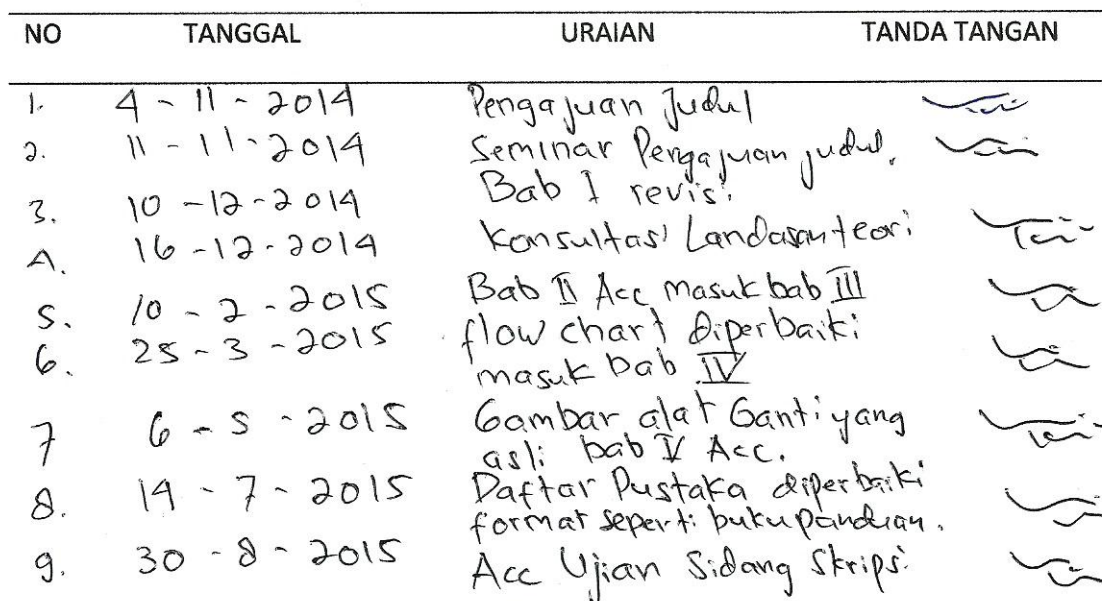 NO TANGGAL URAIAN TANDA TANGAN
1. 4 - 11 - 2014 Pengajuan Judul
2. 11 - 11 - 2014 Seminar Pengajuan judul.
3. 10 - 12 - 2014 Bab I revisi
4. 16 - 12 - 2014 Konsultasi Landasan teori
5. 10 - 2 - 2015 Bab II Acc masuk bab III
6. 25 - 3 - 2015 flow chart diperbaiki
masuk bab IV
7 6 - 5 - 2015 Gambar alat Ganti yang
asli bab V Acc.
8. 14 - 7 - 2015 Daftar Pustaka diperbaiki
format seperti buku panduan.
9. 30 - 8 - 2015 Acc Ujian Sidang Skripsi